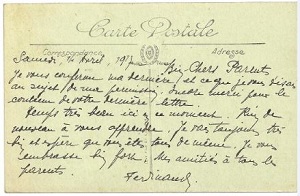 Carte Postale
Correspondance
Adresse
Samedi, Avril, 19
Bien Chers Parents
Je vous confirme ma dernière, et ce que je vous disais
au sujet de ma permission. merci pour le
contenu de votre dernière lettre.
Temps très beau ici en ce moment. Rien de
nouveau à vous apprendre. Je vais toujours très
bien et espère que vous êtes tous de même. Je vous
embrasse bien fort. Mes amitiés à tous les
parents.
Fernand